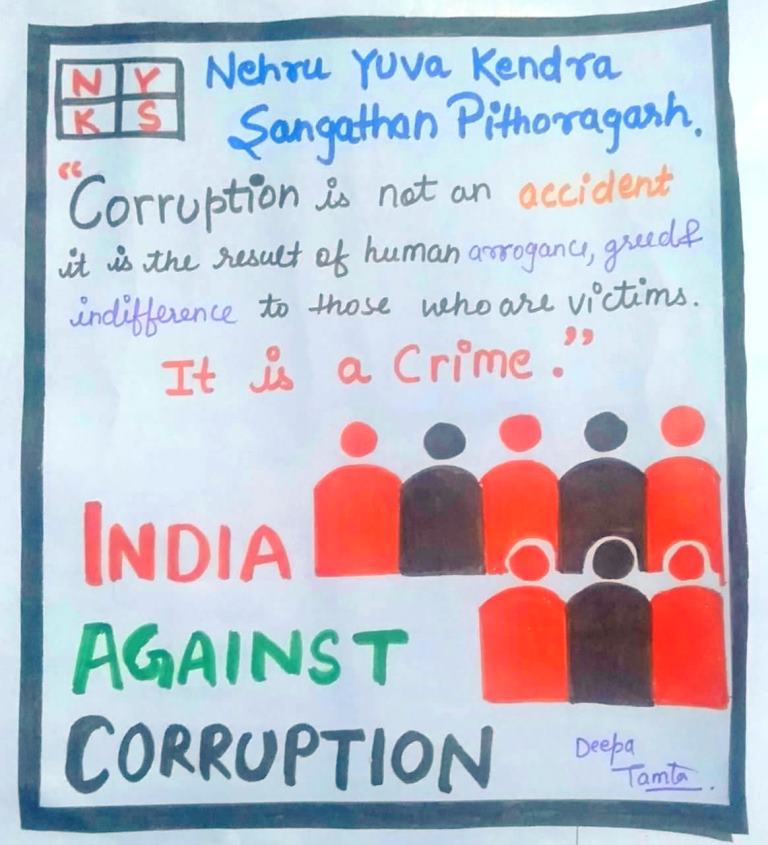 N Y
K S
Nehru Yuva Kendra
Sangathan Pithoragarh.
“Corruption is not an accident
it is the result of human arrogance, greed &
indifference to those who are victims.
It is a Crime.”
INDIA
AGAINST
CORRUPTION
Deepa
Tamta.